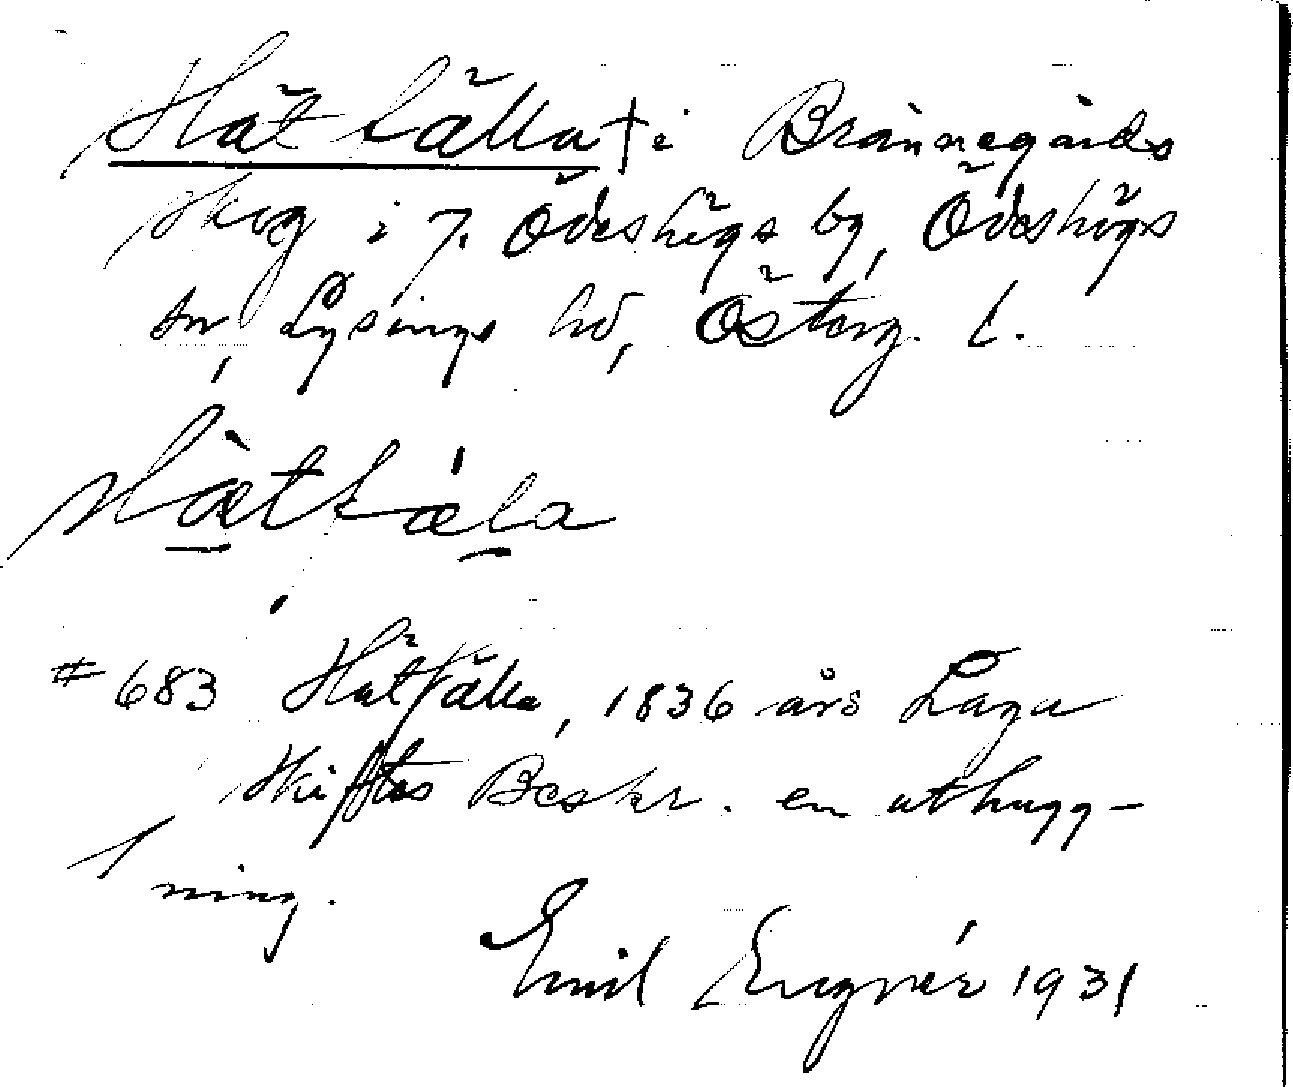 Slätfälla † i Brännegårds
skog i 7. Ödeshögs by, Ödeshögs
sn, Lysings hd, Österg. l.
slætfæla
# 683 Slätfälla, 1836 års Laga
Skiftes Beskr. en uthugg-
ning.
Emil Engnér 1931